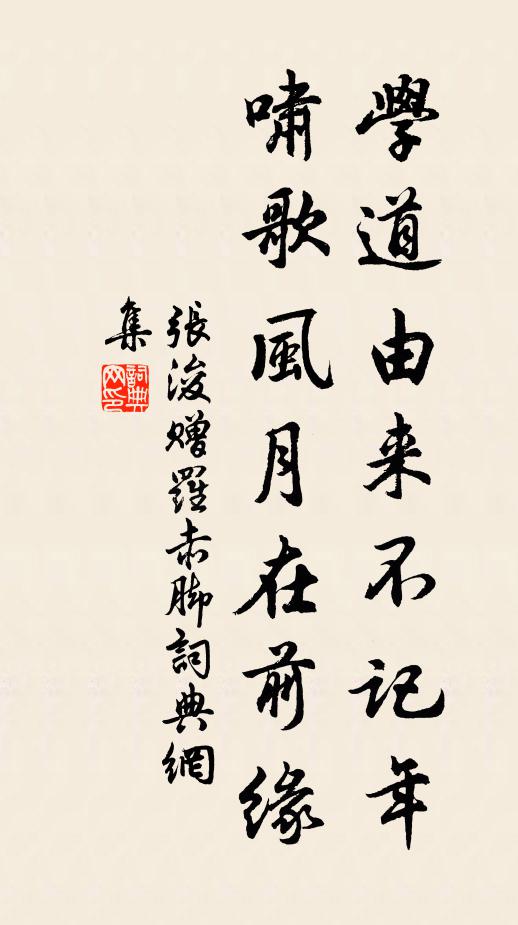 學道由来不记年
嘯歌風月在前緣
張浚赠羅赤脚詞典網
集
詞典
网印